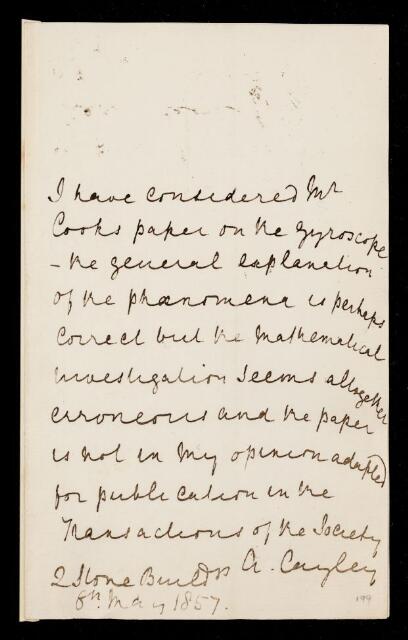 I have considered Mr
Cooks paper on the Gyroscope
– the general explanation
of the phænomena is perhaps
correct but the mathematical
investigation seems altogether
erroneous and the paper
is not in my opinion adapted
for publication in the
Transactions of the Society
A. Cayley
2 Stone Buildgs
8th. May 1857.
199